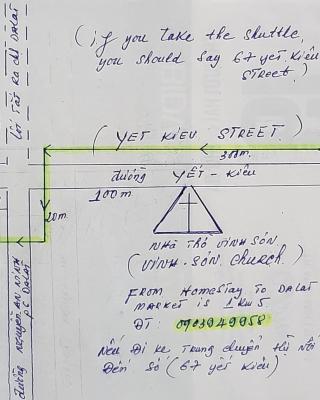 (if you take the shuttle,
you should say 67 yết Kiêu
STREET.)
Lối Tắt Ra Chợ DALAT
( YET KIEU STREET )
300m.
đường YẾT - Kiêu
100m
20m
NHÀ THỜ VINH SƠN
(VINH - SƠN. CHURCH.)
FROM HOMESTAY TO DALAT
MARKET is 1 Km 5
ĐT: 0903049958
Nếu Đi xe Trung chuyển Hãy Nói
Đến Số (67 yết Kiêu)
đường NGUYỄN AN NINH
P6 DALAT